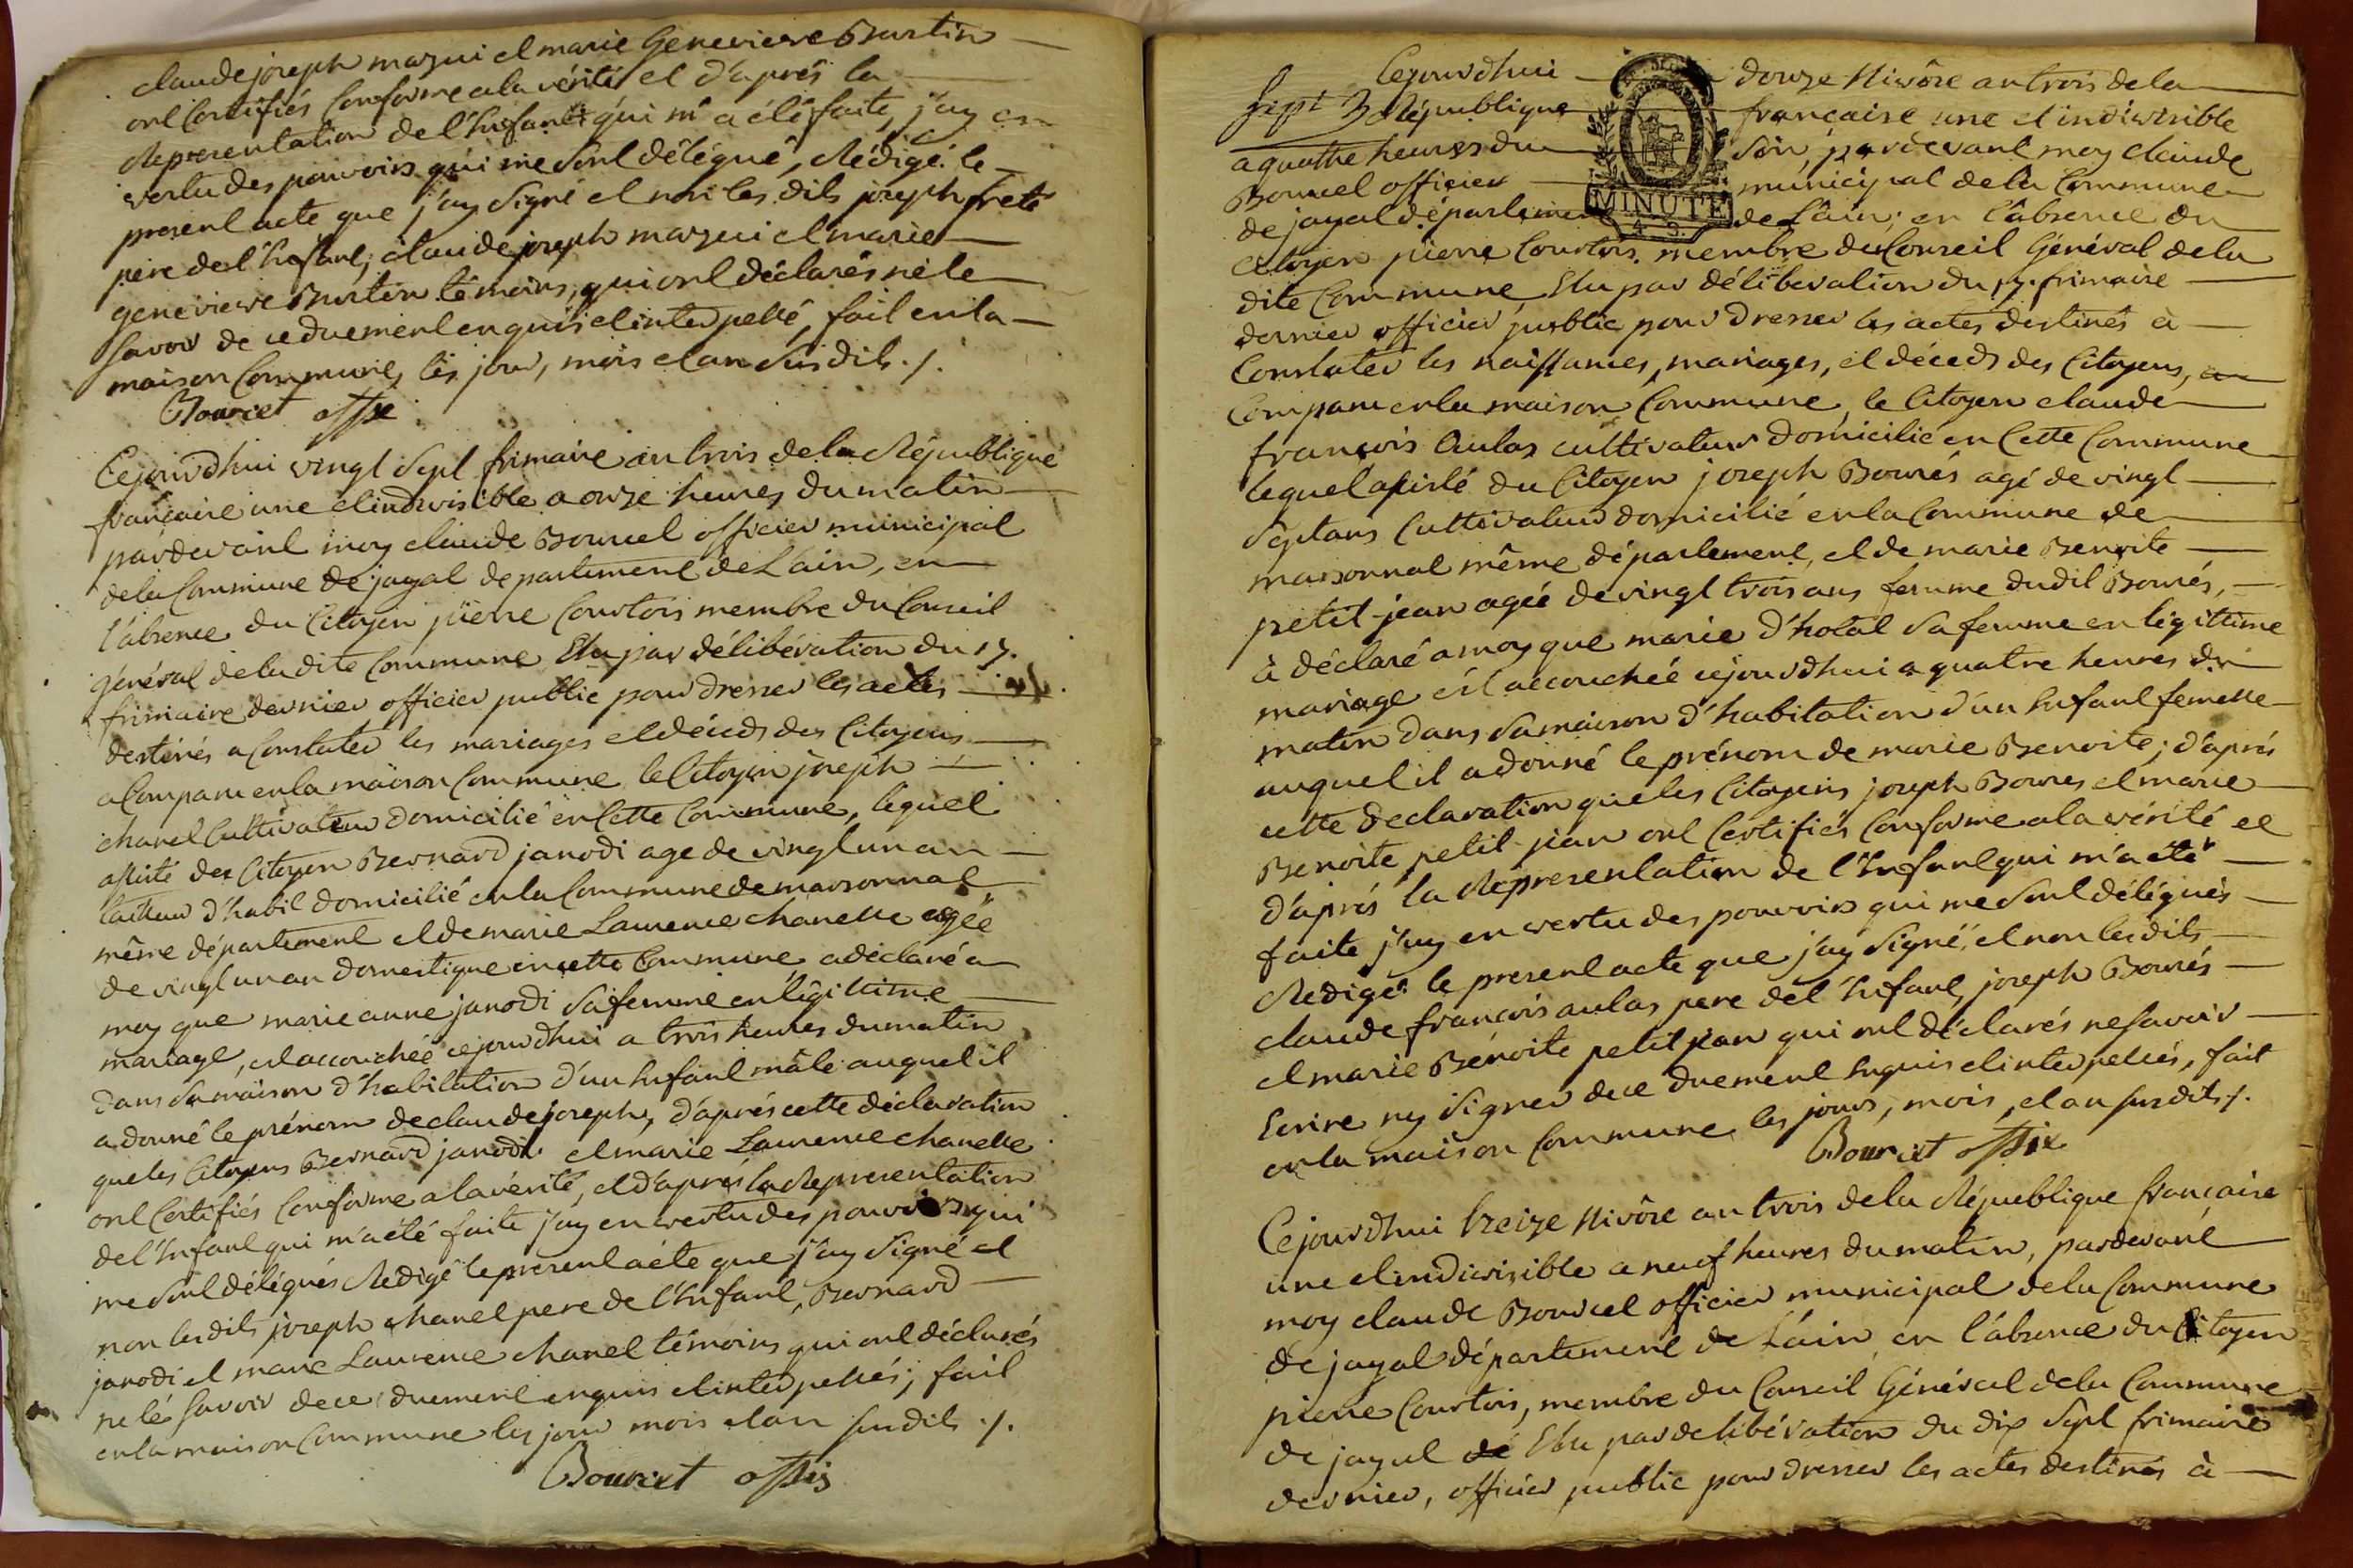 claude joseph mazui et marie Genevieve Burtin
ont Certifiés Conforme a la vérité et d'aprés la
Representation de l'Enfant qui m'a été faite, j'ay en
vertu des pouvoirs qui me sont délégué, Rédigé le
present acte que j'ay signé et non les dits joseph
pere de l'Enfant, claude joseph mazui et marie
genevieve Burtin témoins, qui ont déclarés ne le
savoir de ce duement enquis et interpellé, fait en la
maison Commune, les jour, mois et an susdits ./.
Bourcet offi
Cejourdhui vingt sept frimaire an trois de la République
française une et indivisible a onze heures du matin
pardevant moy claude Bourcel officier municipal
de la Commune de jayal departement de L'ain, en
l'absence du Citoyen pierre Courtois membre du Conseil
général de la dite Commune Elu par délibération du 17.
frimaire dernier officier public pour dresser les actes
destinés a Constater les mariages et déceds des Citoyens
a Comparu en la maison Commune le Citoyen joseph
chanel Cultivateur domicilié en Cette Commune, lequel
assisté des Citoyen Bernard janodi age de vingt un an
tailleur d'habit domicilié en la Commune de marsonnal
même département et de marie Laurence chanelle agée
de vingt un an domestique en cette Commune a déclaré a
moy que marie anne janodi sa femme en légittime
mariage, est accouchée cejourdhui a trois heures du matin
dans sa maison d'habitation d'un Enfant mâle auquel il
a donné le prénom de claude joseph, d'aprés cette déclaration
que les Citoyens Bernard janodi et marie Laurence chanelle
ont Certifiés Conforme a la vérité, et d'aprés la Representation
de l'Enfant qui m'a été faite j'ay en vertu des pouvoirs qui
me sont délégués Redigé le present acte que j'ay signé et
non les dits joseph chanel pere de l'Enfant, Bernard
janodi et marie Laurence chanel témoins qui ont déclarés
ne le savoir de ce duement enquis et interpellés; fait
en la maison Commune les jour mois et an susdits ./.
Bourcet offi
Cejourdhui douze Nivôse an trois de la
République française une et indivisible
a quatre heures du soir, pardevant moy claude
Bourcel officier municipal de la Commune
de jayal département de L'ain; en l'absence du
MINUTE
Citoyen pierre Courtois, membre du Conseil Général de la
dite Commune, Elu par délibération du 17. frimaire
dernier officier public pour dresser les actes destinés a
Constater les naissances, mariages, et déceds des Citoyens, a
Comparu en la maison Commune, le Citoyen claude
françois Aulas cultivateur domicilié en Cette Commune
lequel assisté du Citoyen joseph Bourés agé de vingt
sept ans Cultivateur domicilié en la Commune de
marsonnal même département, et de marie Benoite
petit-jean agée de vingt trois ans femme du dit Bourés,
à déclaré a moy que marie d'hotal sa femme en légittime
mariage est accouchée cejourdhui a quatre heures du
matin dans sa maison d'habitation d'un Enfant femelle
auquel il a donné le prénom de marie Benoite; d'aprés
cette declaration que les Citoyens joseph Boures et marie
Benoite petit-jean ont Certifiés Conforme a la vérité et
d'aprés la Représentation de l'Enfant qui m'a été
faite j'ay en vertu des pouvoirs qui me sont délégués
Redigé le present acte que j'ay signé, et non les dits
claude françois aulas pere de l'Enfant, joseph Bourés
et marie Benoite petit jean qui ont déclarés ne savoir
Ecrire ny signer de ce duement Enquis et interpellés, fait
en la maison Commune les jours, mois, et an susdits ./.
Bourcet offi
Cejourdhui treize Nivôse an trois de la République française
une et indivisible a neuf heures du matin, pardevant
moy claude Bourcel officier municipal de la Commune
de jayal département de L'ain en l'absence du Citoyen
pierre Courtois, membre du Conseil Général de la Commune
de jayal de Elu par delibération du dix sept frimaire
dernier, officier public pour dresser les actes destinés à